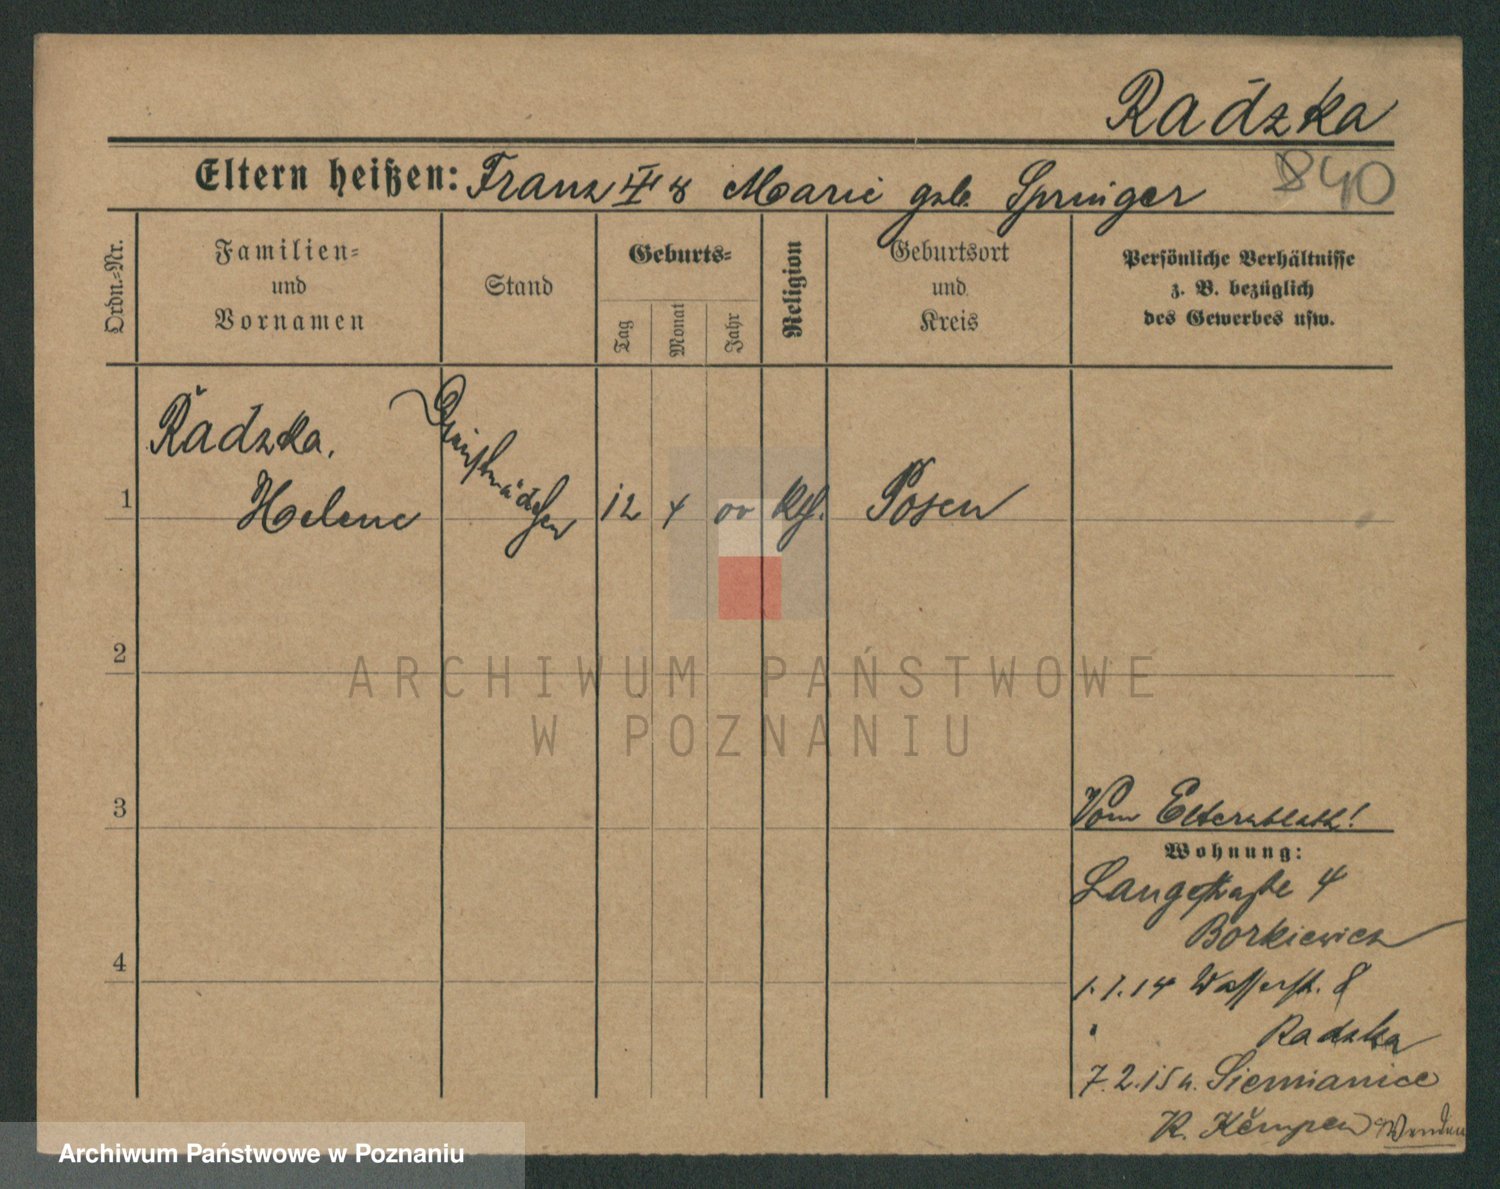 Radzka
Eltern heißen: Franz III & Marie geb. Springer
840
Ordn.-Nr.
Familien-
und
Vornamen
Stand
Geburts-
Tag
Monat
Jahr
Religion
Geburtsort
und
Kreis
Persönliche Verhältnisse
z. B. bezüglich
des Gewerbes usw.
1
Radzka,
Helene
Dienstmädchen
12
4
00
Kth.
Posen
2
3
4
Vom Elternblatt!
Wohnung:
Langestraße 4
Borkiewicz
1.7.14 Wasserst. 8
" Radzka
7.2.15 n. Siemianice
K. Kempen Wenden
ARCHIWUM PAŃSTWOWE
W POZNANIU
Archiwum Państwowe w Poznaniu